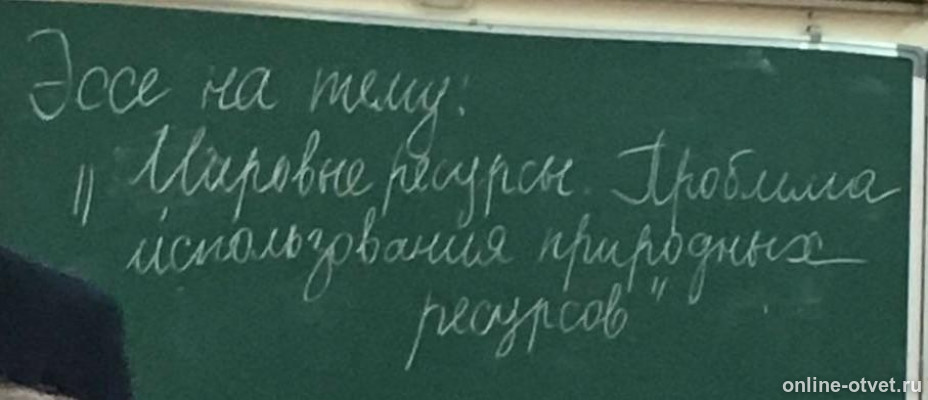 Эссе на тему:
"Мировые ресурсы. Проблема
использования природных
ресурсов"
online-otvet.ru